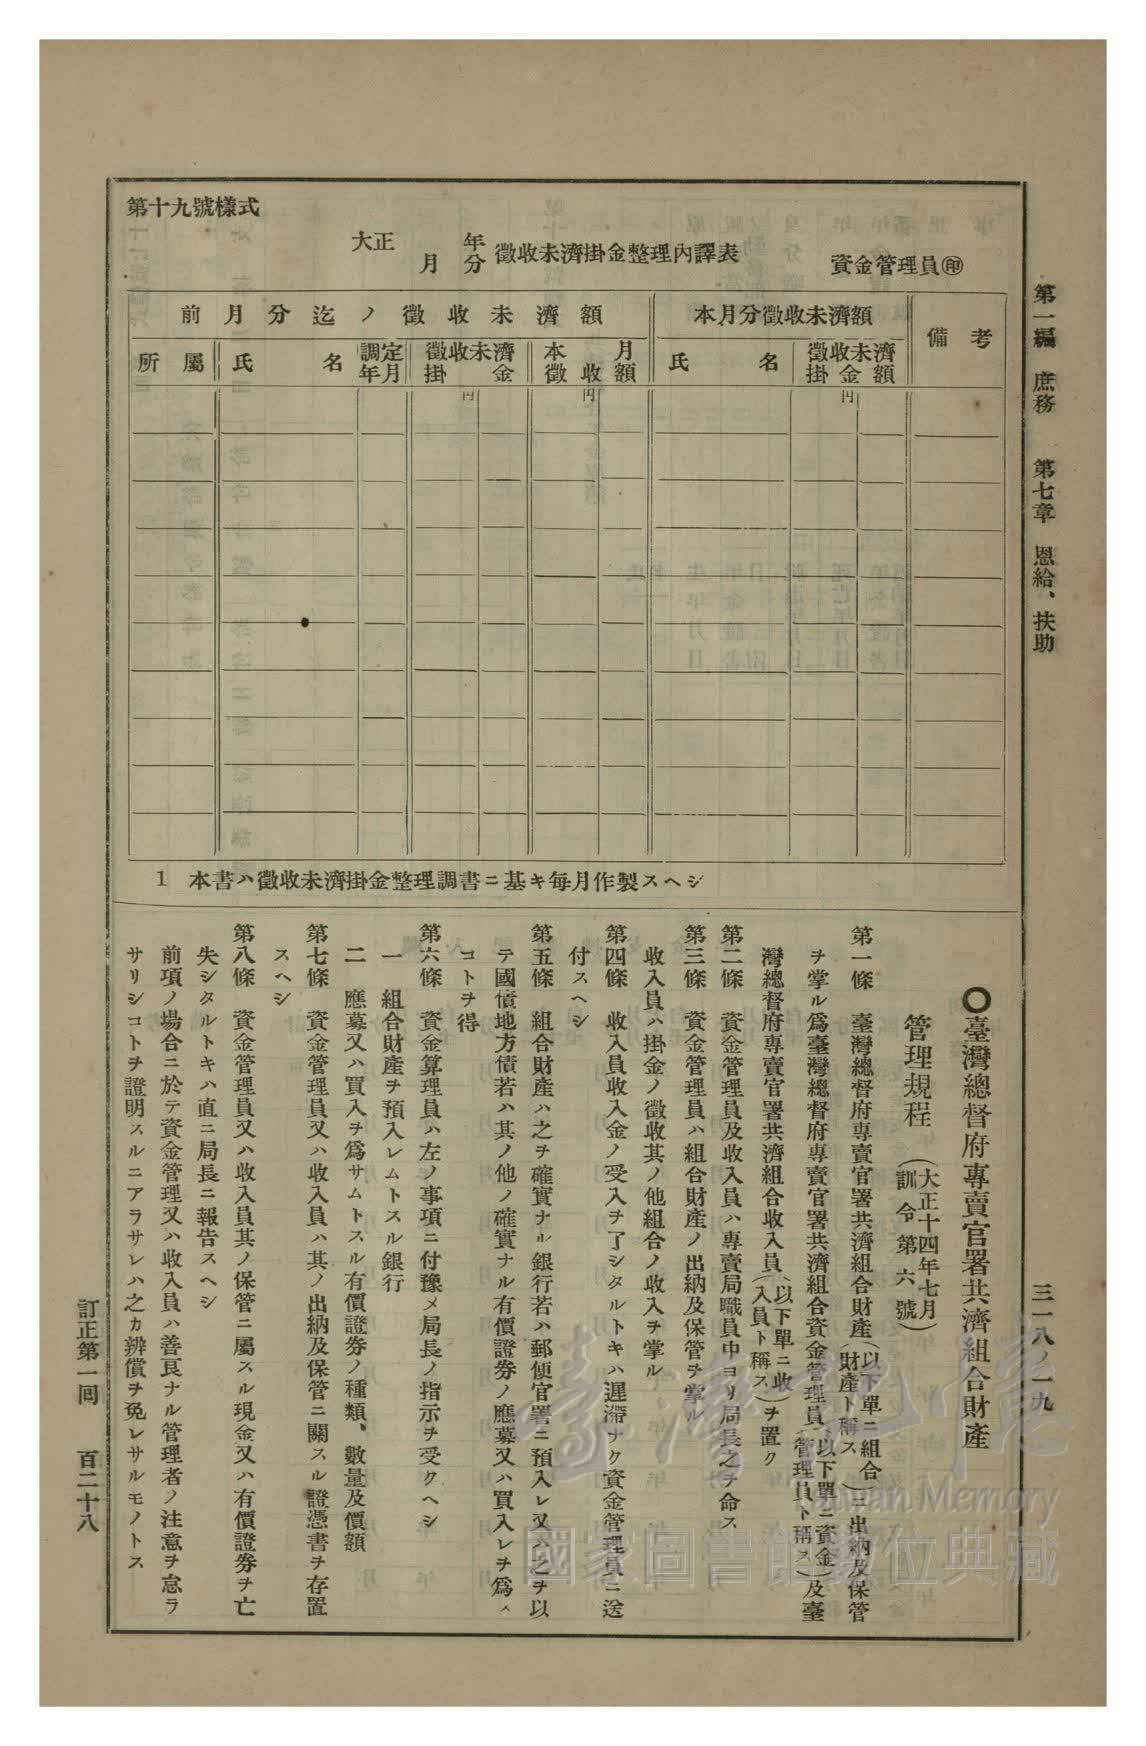 第一編　庶務　　第七章　恩給、扶助
三一八ノ一九
第十九號樣式
大正　　年　月分　徵收未濟掛金整理內譯表
資金管理員㊞
前月分迄ノ徵收未濟額　本月分徵收未濟額　備考
所屬　氏名　調定年月　徵收未濟掛金　本月徵收額　氏名　徵收未濟掛金額
円　円　円
1　本書ハ徵收未濟掛金整理調書ニ基キ每月作製スヘシ
〇臺灣總督府專賣官署共濟組合財產
管理規程　（大正十四年七月訓令第六號）
第一條　臺灣總督府專賣官署共濟組合財產（以下單ニ組合財產ト稱ス）ニ出納及保管
ヲ掌ル爲臺灣總督府專賣官署共濟組合資金管理員（以下單ニ資金管理員ト稱ス）及臺
灣總督府專賣官署共濟組合收入員（以下單ニ收入員ト稱ス）ヲ置ク
第二條　資金管理員及收入員ハ專賣局職員中ヨリ局長之ヲ命ス
第三條　資金管理員ハ組合財產ノ出納及保管ヲ掌ル
收入員ハ掛金ノ徵收其ノ他組合ノ收入ヲ掌ル
第四條　收入員收入金ノ受入ヲ了シタルトキハ遲滯ナク資金管理員ニ送
付スヘシ
第五條　組合財產ハ之ヲ確實ナル銀行若ハ郵便官署ニ預入レ又ハ之ヲ以
テ國債地方債若ハ其ノ他ノ確實ナル有價證券ノ應募又ハ買入レヲ爲ス
コトヲ得
第六條　資金算理員ハ左ノ事項ニ付豫メ局長ノ指示ヲ受クヘシ
一　組合財產ヲ預入レムトスル銀行
二　應募又ハ買入ヲ爲サムトスル有價證券ノ種類、數量及價額
第七條　資金管理員又ハ收入員ハ其ノ出納及保管ニ關スル證憑書ヲ存置
スヘシ
第八條　資金管理員又ハ收入員其ノ保管ニ屬スル現金又ハ有價證券ヲ亡
失シタルトキハ直ニ局長ニ報告スヘシ
前項ノ場合ニ於テ資金管理又ハ收入員ハ善良ナル管理者ノ注意ヲ怠ラ
サリシコトヲ證明スルニアラサレハ之カ辨償ヲ免レサルモノトス
訂正第一回　百二十八
臺灣記憶
Taiwan Memory
國家圖書館數位典藏